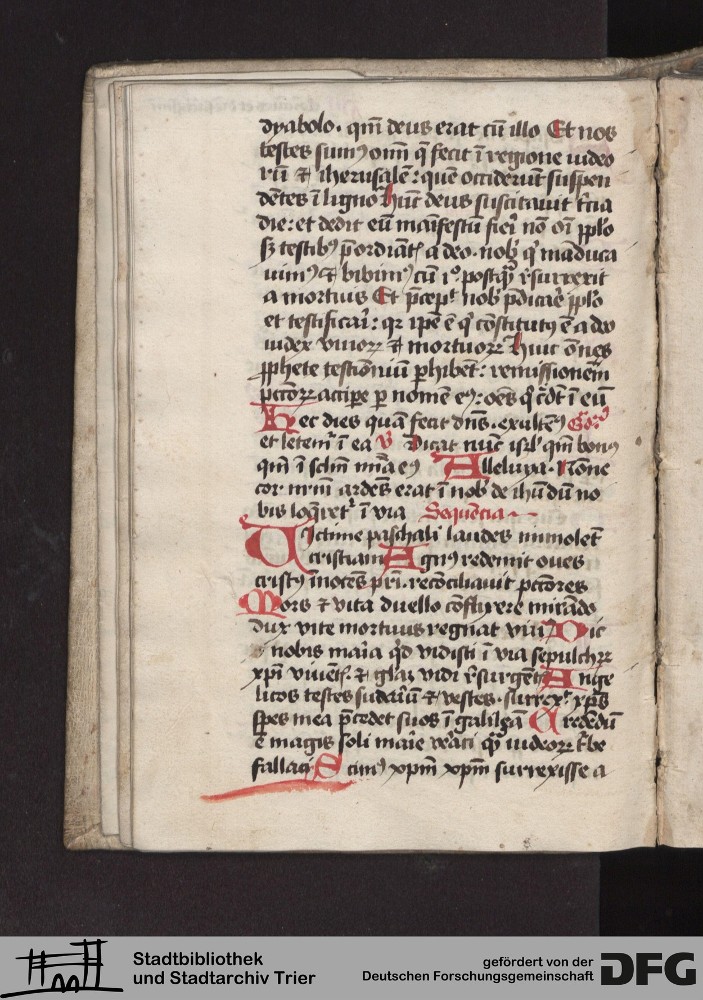 dyabolo. qm̄ deus erat cū illo Et nos
testes sumꝰ om̄ q̄ fecit ī regione iudeo
rū et iherusalē: quē occiderūt suspen
dētes ī ligno hūc deus suscitauit t̄cia
die: et dedit eū manifestū fieri nō oī pplo
sꝫ testibꝰ p̄ordinatꝭ a deo. nob̄ qͥ manduca
uimꝰ et bibimꝰ cū iº. postqᷓ r̄surrexit
a mortuis Et p̄cepᵗ nob̄ p̄dicare pplo
et testificari: qꝛ ip̄e ē qͥ cōstitutꝰ ē a deo
iudex viuoꝝ et mortuoꝝ Huic ōnes
ꝓphete testimoniū ꝑhibēt: remissionem
pctōꝝ accipe ꝑ nomē eꝰ: oēs qͥ cr̄dt̄ ī eū
Hec dies quā fecit dn̄s. exultemꝰ
et letemꝰ ī ea V Dicat nūc isrl̄ qm̄ bonꝰ
qm̄ ī sclm̄ mīa eꝰ Alleluya. Nōne
cor nrm̄ ardēs erat ī nob̄ de ihū dū
bis loq̄retᷣ ī via Sequēcia
Victime paschali laudes immolēt
cristiani Agnꝰ redemit oues
cristꝰ īnocēs pri. recōciliauit pctōres
Mors et vita duello cōflixere mirādo
dux vite mortuus regnat viuꝰ Dic
nobis maria qͥd vidisti ī via sepulchꝝ
xpī viuētꝭ et gl̄az vidi r̄surgētꝭ Ange
licos testes sudariū et vestes. surrexᵗ xp̄s
spes mea p̄cedet suos ī galilea Credēdū
ē magis soli marie veraci qᷓ iudeoꝝ t̄be
fallaci Scimꝰ xpm̄ xpm̄ surrexisse a
Stadtbibliothek
und Stadtarchiv Trier
gefördert von der
Deutschen Forschungsgemeinschaft
DFG